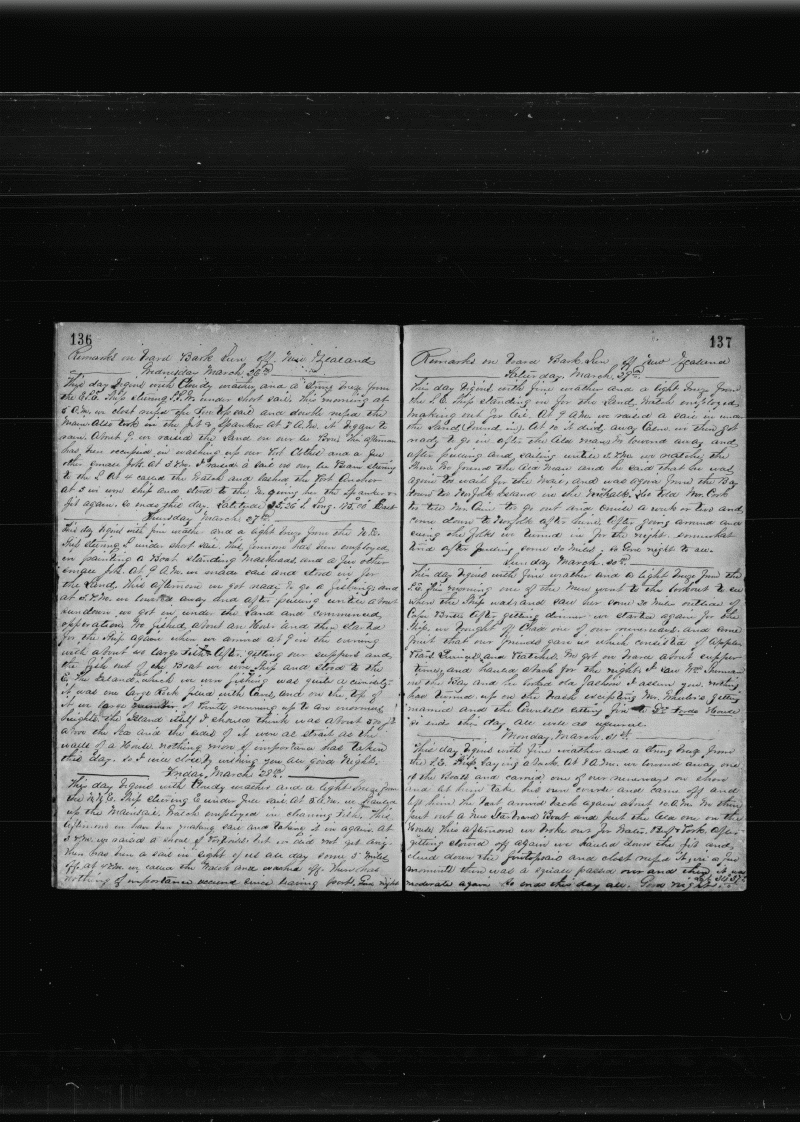 136
Remarks on board Bark Sea off New Zealand
Wednesday March 26th
This day begins with Cloudy weather and a Strong breeze from
the Ship steering under short sail. This morning at
6 A.M. close reefed the Fore Topsail and double reefed the
Main also took in the Jib & Spanker at 7 A.M. it began to
rain. About we raised the Land on our lee Bow. This afternoon
has been occupied in washing up our Port Clothes and a few
other small jobs. At 3 P.M. I raised a sail on our lee Beam steering
to the At 4 called the Watch and lashed the Port Anchor
at 5 we wore ship and stood to the giving her the Spanker &
Jib again. So ends this day. Latitude Long. East
Thursday March 27th
This day begins with fine weather and a light breeze from the N.E.
Ship steering under short sail. This forenoon has been employed
in painting a Boat, standing Mastheads and a few other
small jobs. At 9 A.M. we made sail and stood in for
the Land. This afternoon we got ready to go a fishing and
at P.M. we lowered away and after pulling until about
sundown we got in under the Land and commenced
operations. We fished about an Hour and then started
for the Ship again where we arrived at in the evening
with about 20 large fish. After getting our suppers and
the fish out of the Boat we wore Ship and stood to the
E. The Island at which we were fishing was quite a curiosity
it was one large Rock filled with Caves, and on the top of
it were large number of Points running up to an enormous
height. the Island itself I should think was about
above the Sea and the sides of it were as strait as the
walls of a House. nothing more of importance has taken
this day. so I will close by wishing you all good Night.
Friday March 28th
This day begins with Cloudy weather and a light breeze from
the N.N.E. Ship steering E under full sail. At 5 A.M. we hauled
up the Mainsail. Watch employed in cleaning Fish. This
Afternoon we have been making sail and taking it in again. At
P.M. we raised a shoal of Porpoises but we did not get any.
There has been a sail in sight of us all day some 5 miles
off. at 4 P.M. we called the Watch and washed off. There has
nothing of importance occured since leaving port. Fine night
137
Remarks on board Bark Sea off New Zealand
Saturday March 29th
This day begins with fine weather and a light breeze from
the S.E. Ship standing in for the Land. Watch employed
making out for At 9 A.M. we raised a sail in under
the Land (Stood in). At 10 it died away Calm we then got
ready to go in after the Old man. We lowered away and
after pulling and sailing until 2 P.M. we reached the
Shore. We found the Old Man and he said that he was
agoing to wait for the Mail, and was agoing from the Bay
down to Norfolk Island in the He told Mr Cook
to tell Mr. Cain to go out and cruise a week or two and
come down to Norfolk after him. After going around and
seeing the folks we turned in for the night, somewhat
tired after pulling some 20 Miles, so Good night to all.
Sunday March 30th
This day begins with fine weather and a light breeze from the
S.E. This morning one of the Men went to the Lookout to see
where the Ship was and saw her some 20 miles outside of
Cape Brett. After getting dinner we started again for the
Ship, we brought off Chas one of our runaways and some
fruit that our friends gave us which consisted of Apples
Pears and Peaches. We got on board about supper
time, and hauled aback for the night. I saw Wm.
in the Bay and he looked old fashion I assure you. nothing
has turned up on the Bark excepting Mr. getting
married and the Counsels selling
so ends this day all well as usual.
Monday March 31st
This day begins with fine weather and a Strong breeze from
the S.E. Ship laying aback. At 8 A.M. we lowered away one
of the Boats and carried one of our runaways on shore
and let him take his own course and came off and
left him the last around Deck again about 10 A.M. We then
put out a New Fore and put the old one on the
House. This afternoon we broke out for Water, Beef & Pork. After
getting stowed off again we hauled down the jib and
clewed down the foretopsail and close reefed it, in a few
moments there was a squall passed over and then it was
moderate again. So ends this day all. Good night.